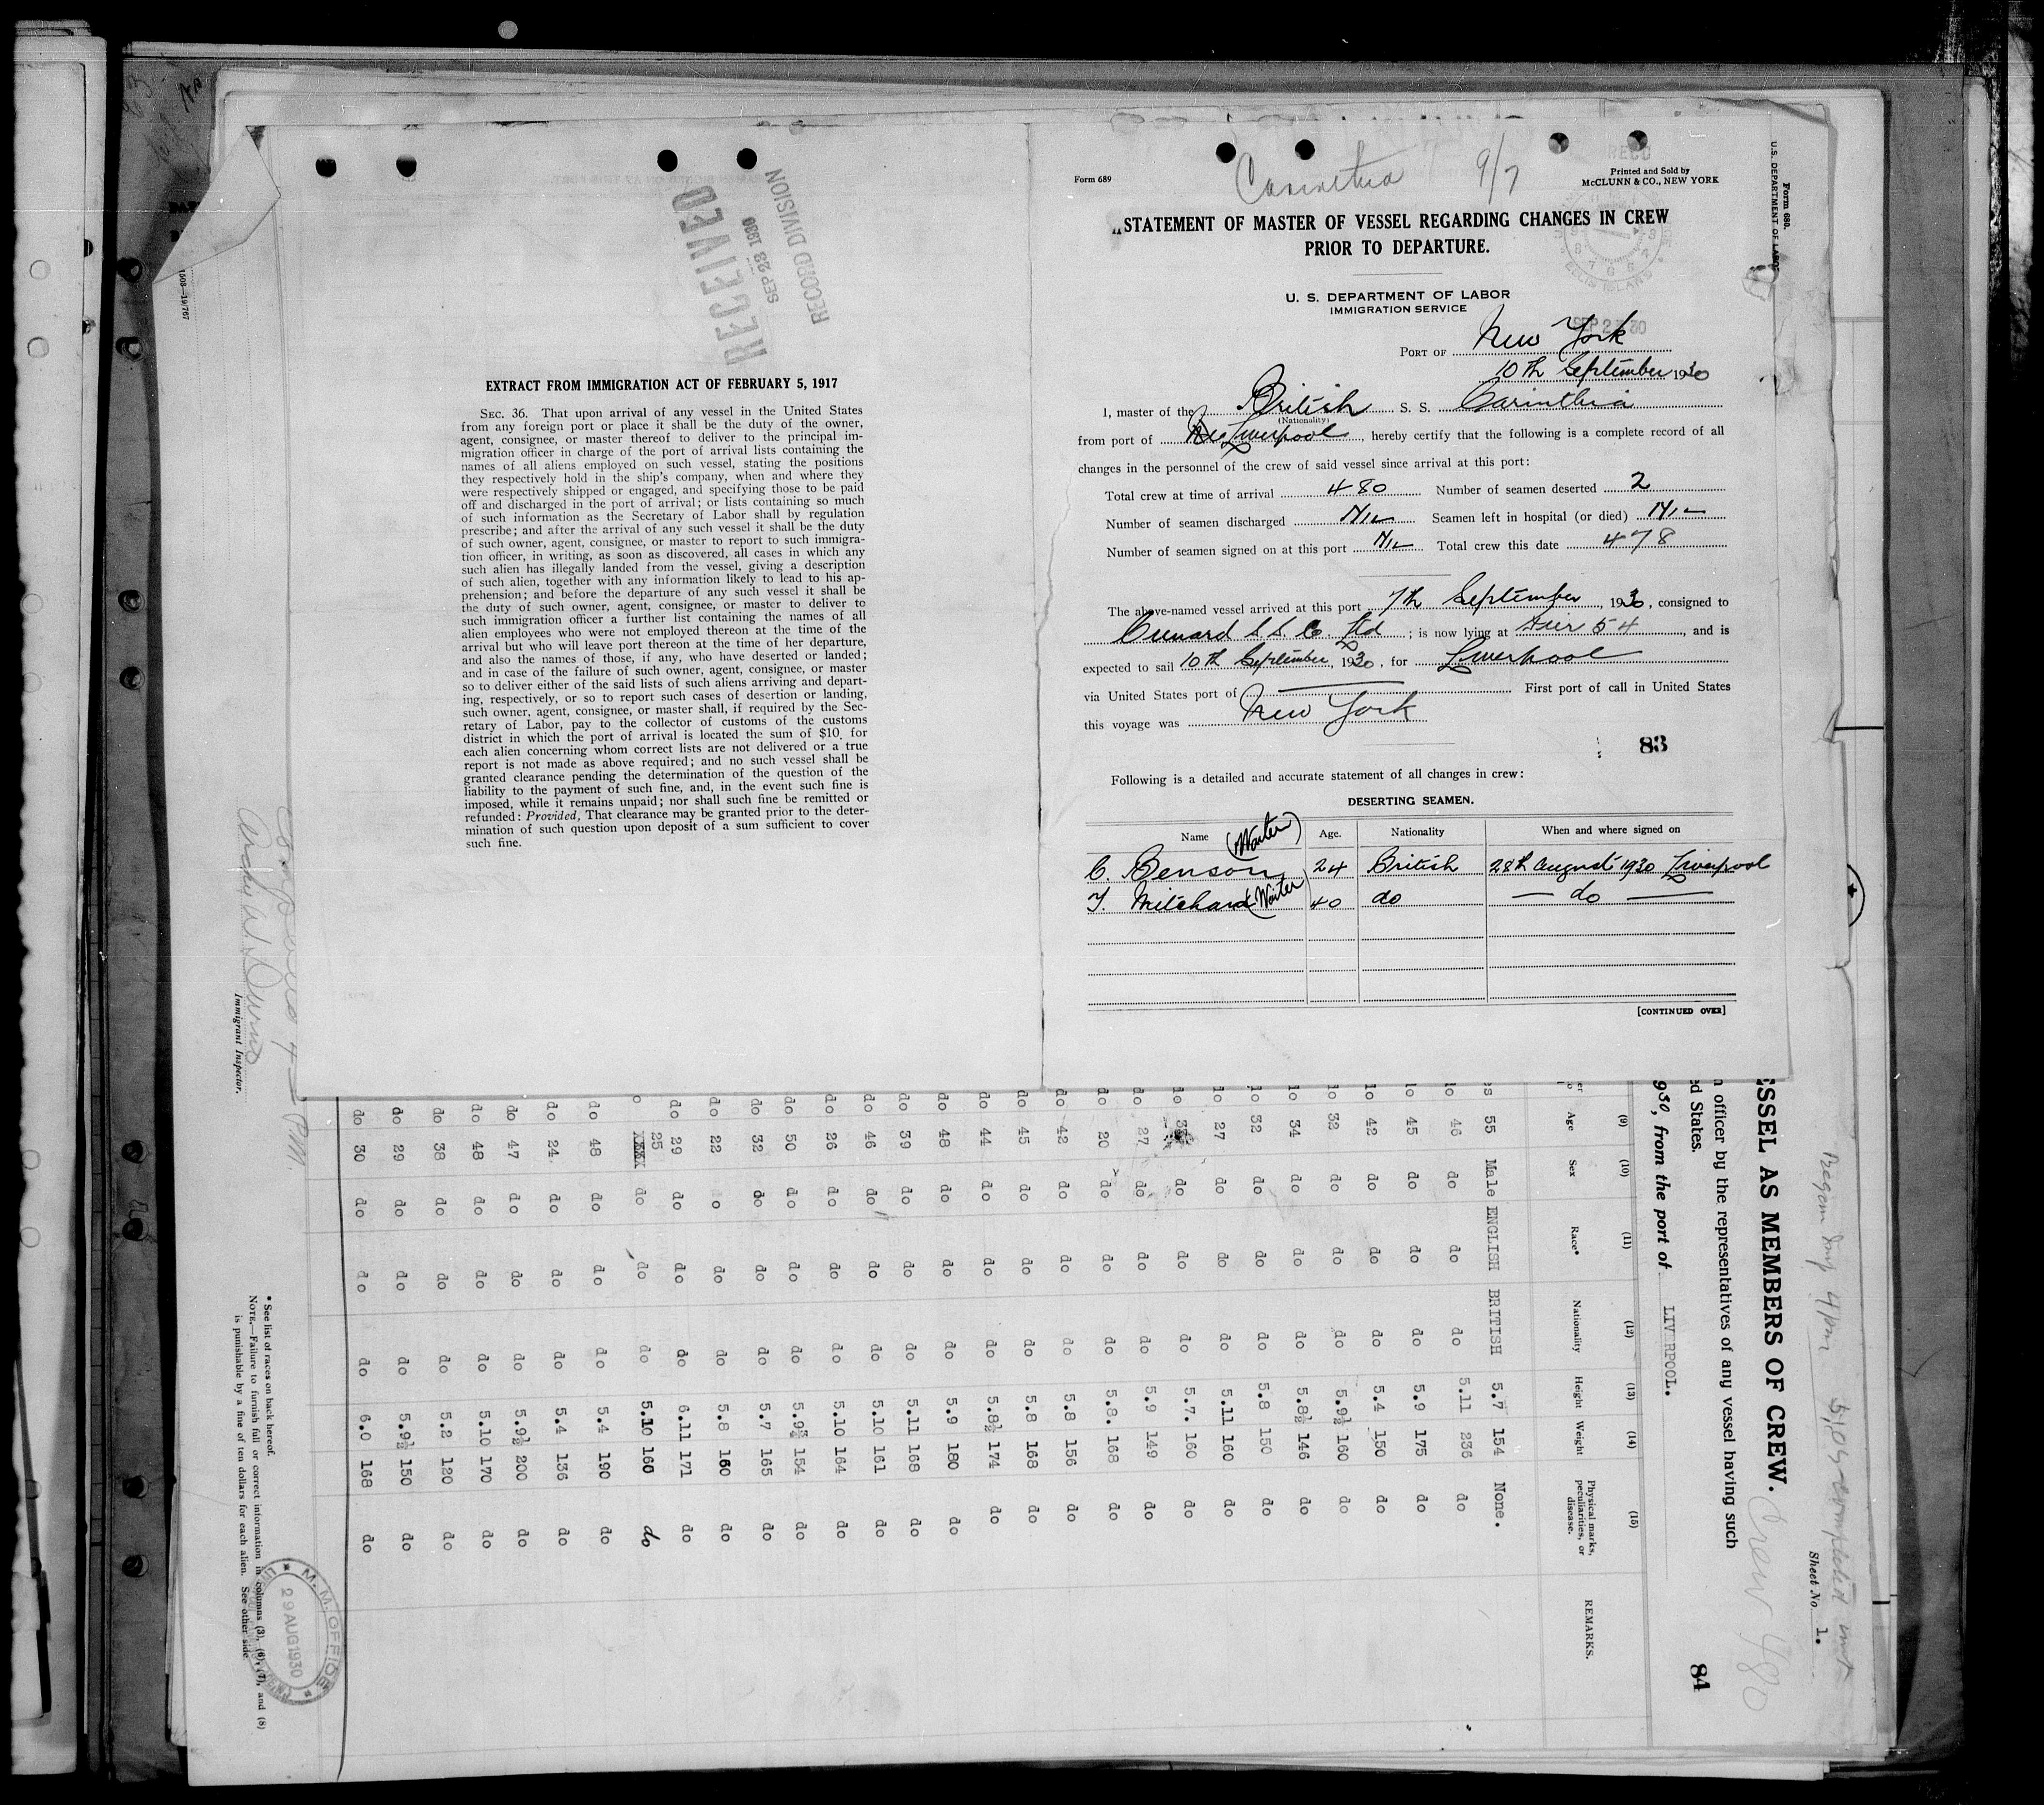 RECEIVED
SEP 23 1930
RECORD DIVISION
EXTRACT FROM IMMIGRATION ACT OF FEBRUARY 5, 1917
SEC. 36. That upon arrival of any vessel in the United States
from any foreign port or place it shall be the duty of the owner,
agent, consignee, or master thereof to deliver to the principal im-
migration officer in charge of the port of arrival lists containing the
names of all aliens employed on such vessel, stating the positions
they respectively hold in the ship's company, when and where they
were respectively shipped or engaged, and specifying those to be paid
off and discharged in the port of arrival; or lists containing so much
of such information as the Secretary of Labor shall by regulation
prescribe; and after the arrival of any such vessel it shall be the duty
of such owner, agent, consignee, or master to report to such immigra-
tion officer, in writing, as soon as discovered, all cases in which any
such alien has illegally landed from the vessel, giving a description
of such alien, together with any information likely to lead to his ap-
prehension; and before the departure of any such vessel it shall be
the duty of such owner, agent, consignee, or master to deliver to
such immigration officer a further list containing the names of all
alien employees who were not employed thereon at the time of the
arrival but who will leave port thereon at the time of her departure,
and also the names of those, if any, who have deserted or landed;
and in case of the failure of such owner, agent, consignee, or master
so to deliver either of the said lists of such aliens arriving and depart-
ing, respectively, or so to report such cases of desertion or landing,
such owner, agent, consignee, or master shall, if required by the Sec-
retary of Labor, pay to the collector of customs of the customs
district in which the port of arrival is located the sum of $10 for
each alien concerning whom correct lists are not delivered or a true
report is not made as above required; and no such vessel shall be
granted clearance pending the determination of the question of the
liability to the payment of such fine, and, in the event such fine is
imposed, while it remains unpaid; nor shall such fine be remitted or
refunded: Provided, That clearance may be granted prior to the deter-
mination of such question upon deposit of a sum sufficient to cover
such fine.
Form 689
Carinthia 9/7
Printed and Sold by
McCLUNN & CO., NEW YORK
STATEMENT OF MASTER OF VESSEL REGARDING CHANGES IN CREW
PRIOR TO DEPARTURE.
U. S. DEPARTMENT OF LABOR
IMMIGRATION SERVICE
ELLIS ISLAND
PORT OF New York
10th September 1930
I, master of the British S. S. Carinthia
(Nationality)
from port of Liverpool, hereby certify that the following is a complete record of all
changes in the personnel of the crew of said vessel since arrival at this port:
Total crew at time of arrival 480 Number of seamen deserted 2
Number of seamen discharged Nil Seamen left in hospital (or died) Nil
Number of seamen signed on at this port Nil Total crew this date 478
The above-named vessel arrived at this port 7th September, 1930, consigned to
Cunard S. S. Co. Ltd; is now lying at Pier 54, and is
expected to sail 10th September, 1930, for Liverpool
via United States port of First port of call in United States
this voyage was New York
83
Following is a detailed and accurate statement of all changes in crew:
DESERTING SEAMEN.
Name Age. Nationality When and where signed on
C. Benson (Waiter) 24 British 28th August 1930 Liverpool
T. Mitchard (Waiter) 40 do — do —
[CONTINUED OVER]
Form 680.
U. S. DEPARTMENT OF LABOR
Sheet No. 1.
ESSEL AS MEMBERS OF CREW.
Crew 480
officer by the representatives of any vessel having such
ed States.
930, from the port of LIV RPOOL.
84
(9) (10) (11) (12) (13) (14) (15)
Age Sex Race* Nationality Height Weight Physical marks, peculiarities, or disease. REMARKS.
55 Male ENGLISH BRITISH 5.7 154 None.
46 do do do 5.11 236 do
45 do do do 5.9 175 do
42 do do do 5.4 150 do
32 do do do 5.9½ 160 do
34 do do do 5.8½ 146 do
32 do do do 5.8 150 do
27 do do do 5.11 160 do
do do do 5.7. 160 do
27 do do do 5.9 149 do
20 do do do 5.8. 168 do
42 do do do 5.8 156 do
45 do do do 5.8 168 do
44 do do do 5.8½ 174 do
48 do do do 5.9 180 do
39 do do do 5.11 168 do
46 do do do 5.10 161 do
26 do do do 5.10 164 do
50 do do do 5.9¾ 154 do
32 do do do 5.7 165 do
22 o do do 5.8 160 do
29 do do do 6.11 171 do
25 do do do 5.10 160 do
48 do do do 5.4 190 do
24. do do do 5.4 136 do
47 do do do 5.9½ 200 do
48 do do do 5.10 170 do
38 do do do 5.2 120 do
29 do do do 5.9½ 150 do
30 do do do 6.0 168 do
* See list of races on back hereof.
NOTE.—Failure to furnish full or correct information in columns (3), (6), (7), and (8)
is punishable by a fine of ten dollars for each alien. See other side.
Immigrant Inspector.
M. M. OFFICE
29 AUG 1930